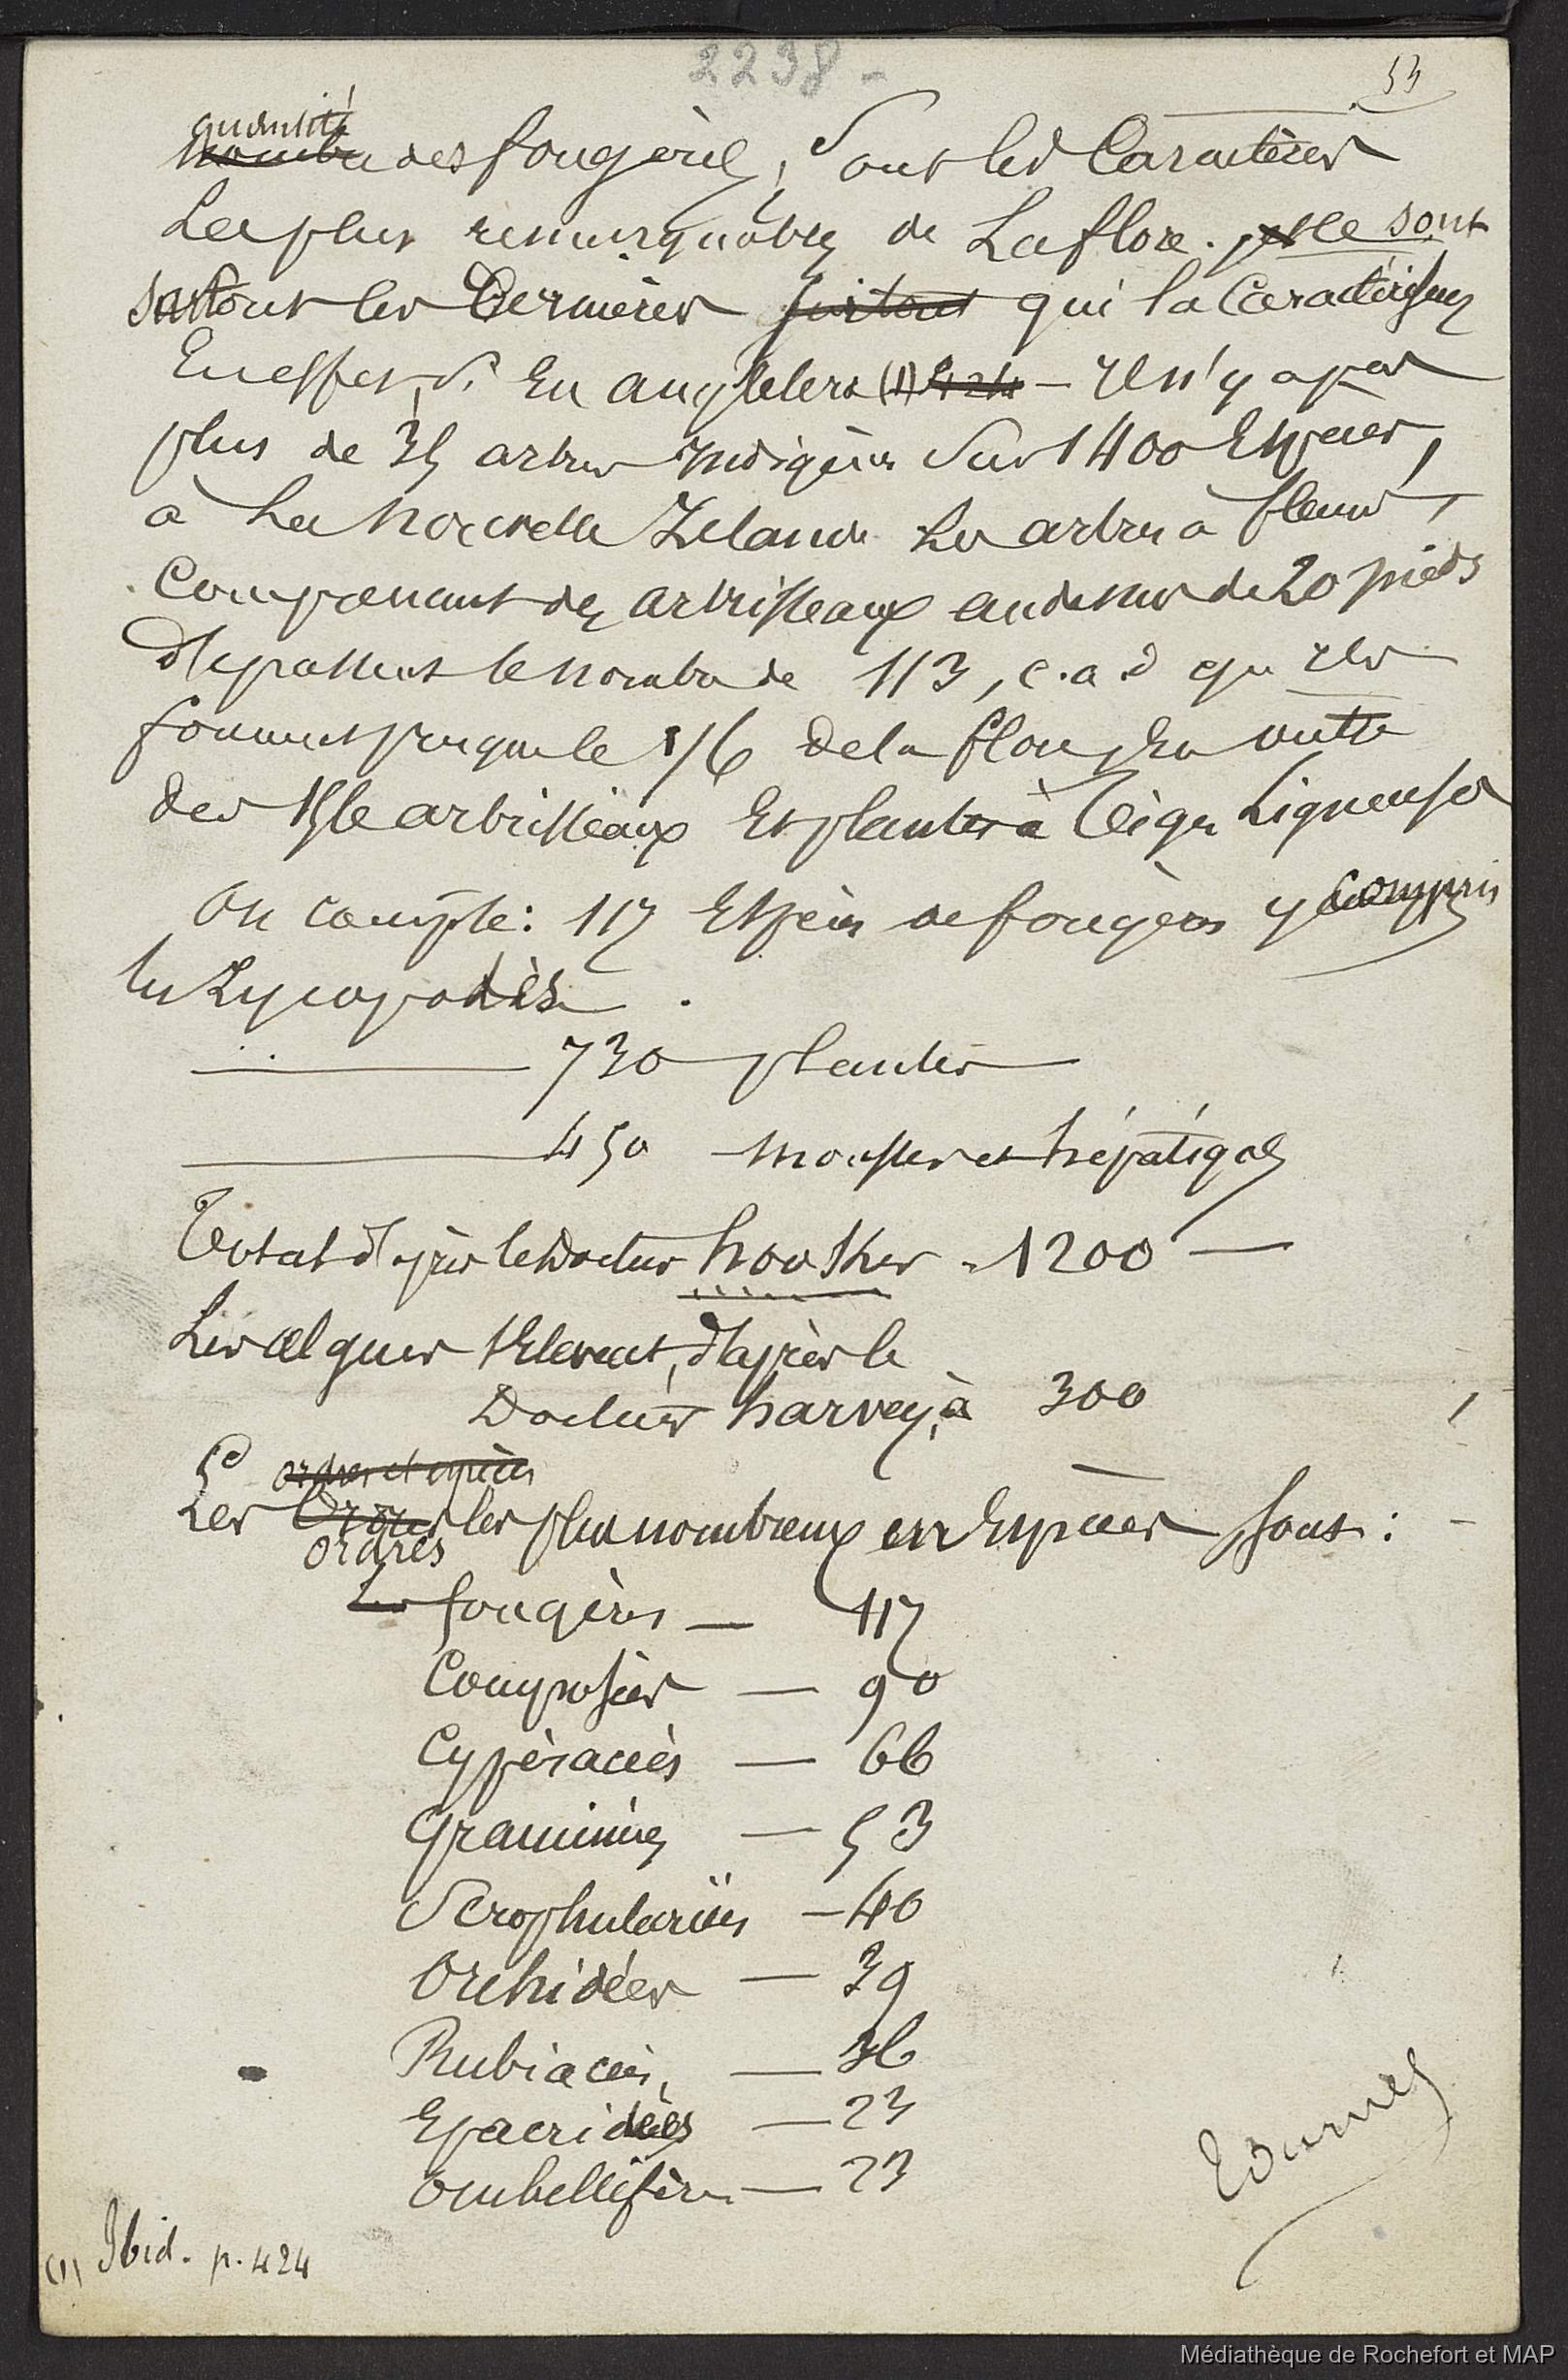 2238 -
53
quantité
nombre des fougères, sont les Caractères
Les plus remarquables de La flore. ce sont
surtout les Dernières surtout qui la Caractérisent
En effet, si En angleterre (1) 424 - Il n'y a pas
plus de 35 arbres Indigènes Sur 1400 Espèces,
à La Nouvelle Zelande Les arbres à fleurs,
Comprenant des arbrisseaux au dessus de 20 pieds
dépassent le nombre de 113, c.a.d qu'ils
forment presque le 1/6 de la flore, En outre
des 156 arbrisseaux Et plantes à Tiges Ligneuses
On compte: 117 Espèces de fougères y compris
les Lycopodes
730 plantes
450 mousses et hépatiques
Total d'après le Docteur hooker - 1200 -
Les algues s'Elevent, d'après le
Docteur harvey, à 300
ordres et espèces
Les Ordres les plus nombreux en Espèces sont :
ordres
Les fougères - 117
Composées - 90
Cypéracées - 66
Graminées - 53
Scrophulariées - 40
Orchidées - 39
Rubiacées, - 36
Epacridées - 23
Ombellifères - 23
(1) Ibid. p. 424
Médiathèque de Rochefort et MAP